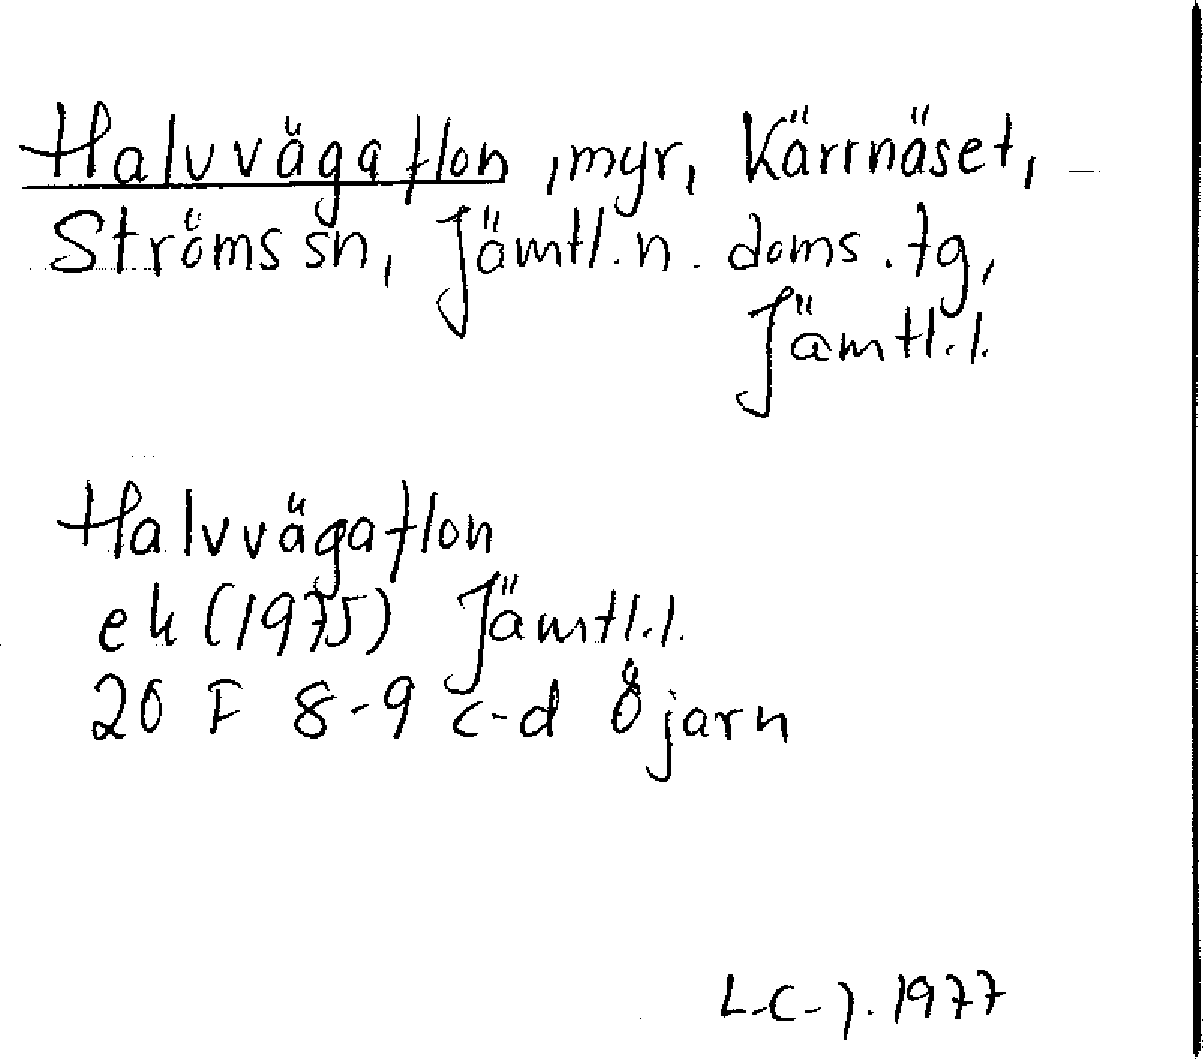 Halvvägaflon, myr, Kärrnäset,
Ströms sn, Jämtl. n. doms. tg,
Jämtl. l.
Halvvägaflon
ek (1975) Jämtl. l.
20 F 8-9 c-d Öjarn
1977